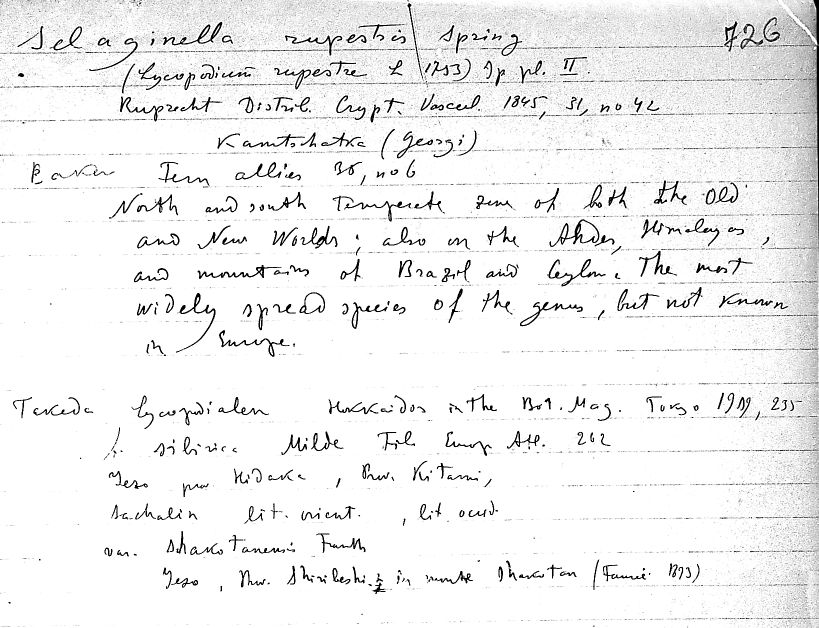 Selaginella rupestris Spring 726
(Lycopodium rupestre L 1753) Sp pl. II.
Ruprecht Distrib. Crypt. Vascul. 1845, 31, no 42
Kamtschatka (Georgi)
Baker Fern allies 36, no 6
North and south Temperate zone of both the Old
and New Worlds; also on the Andes, Himalayas,
and mountains of Brazil and Ceylon. The most
widely spread species of the genus, but not known
in Europe.
Takeda Lycopodialen Hokkaidos in the Bot. Mag. Tokyo 1909, 235
f. sibirica Milde Fil. Europ Atl. 262
Yeso prov Hidaka, Prov. Kitami,
Sachalin lit. orient., lit. occid.
var. Shakotanensis Franch
Yeso, Prov. Shiribeshi. in monte Shakotan (Faurie 1893)